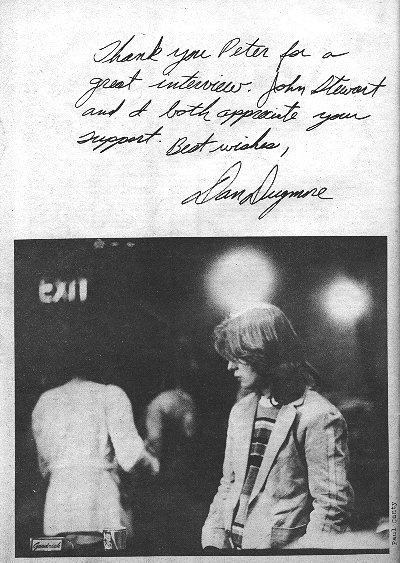 Thank you Peter for a
great interview. John Stewart
and I both appreciate your
support. Best wishes,
Dan Dugmore
EXIT
Paul Canty